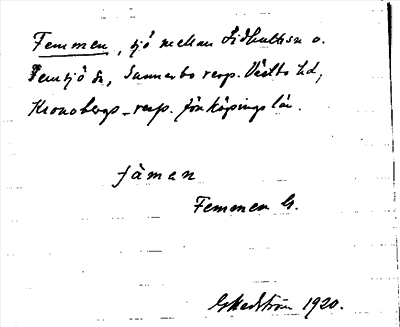 Femmen, sjö mellan Lidhults sn o.
Femsjö sn, Sunnerbo resp. Västbo hd,
Kronobergs- resp. Jönköpings län.
fäman
Femmen G.
1920.